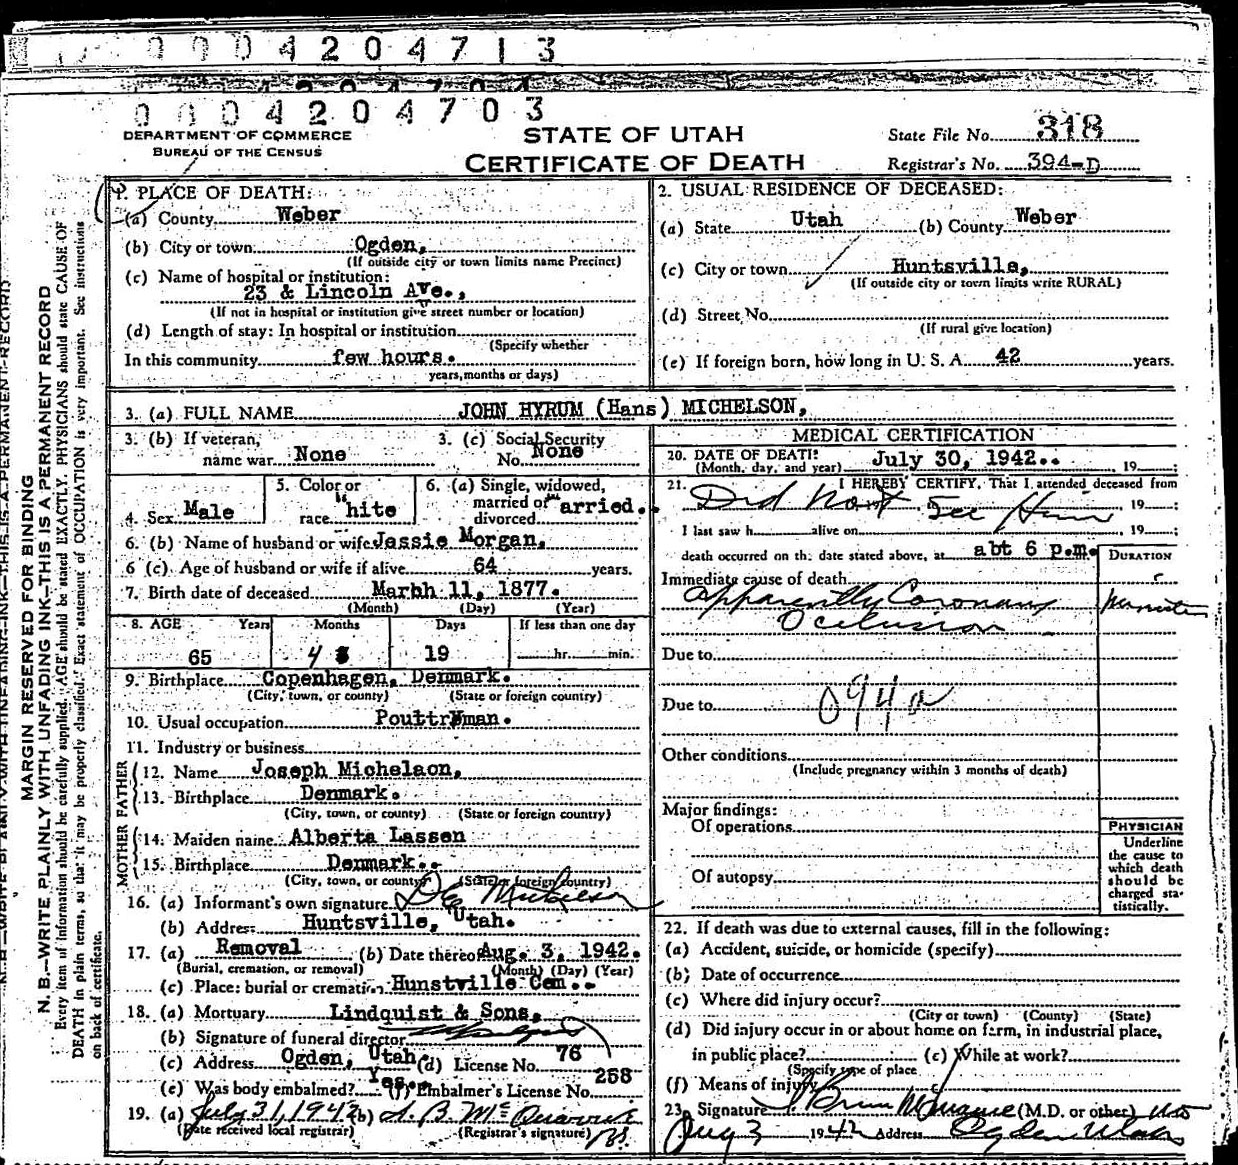 0 0 0 4 2 0 4 7 1 3
0 0 0 4 2 0 4 7 0 3
DEPARTMENT OF COMMERCE
BUREAU OF THE CENSUS
STATE OF UTAH
CERTIFICATE OF DEATH
State File No. 318
Registrar's No. 394-D
MARGIN RESERVED FOR BINDING
N. B.—WRITE PLAINLY WITH UNFADING INK—THIS IS A PERMANENT RECORD
Every item of information should be carefully supplied. AGE should be stated EXACTLY. PHYSICIANS should state CAUSE OF
DEATH in plain terms, so that it may be properly classified. Exact statement of OCCUPATION is very important. See instructions
on back of certificate.
1. PLACE OF DEATH:
(a) County Weber
(b) City or town Ogden,
(If outside city or town limits name Precinct)
(c) Name of hospital or institution:
23 & Lincoln Ave.,
(If not in hospital or institution give street number or location)
(d) Length of stay: In hospital or institution
(Specify whether
In this community few hours.
years, months or days)
2. USUAL RESIDENCE OF DECEASED:
(a) State Utah (b) County Weber
(c) City or town Huntsville,
(If outside city or town limits write RURAL)
(d) Street No.
(If rural give location)
(e) If foreign born, how long in U. S. A. 42 years.
3. (a) FULL NAME JOHN HYRUM (Hans) MICHELSON,
3. (b) If veteran, name war None
3. (c) Social Security No. None
4. Sex Male
5. Color or race "hite
6. (a) Single, widowed, married or divorced "arried.
6. (b) Name of husband or wife Jessie Morgan,
6 (c). Age of husband or wife if alive 64 years.
7. Birth date of deceased Marbh 11, 1877.
(Month) (Day) (Year)
8. AGE Years Months Days If less than one day
65 4 19 hr. min.
9. Birthplace Copenhagen, Denmark.
(City, town, or county) (State or foreign country)
10. Usual occupation Pouttryman.
11. Industry or business
FATHER
12. Name Joseph Michelson,
13. Birthplace Denmark.
(City, town, or county) (State or foreign country)
MOTHER
14. Maiden name Alberta Lassen
15. Birthplace Denmark..
(City, town, or county) (State or foreign country)
16. (a) Informant's own signature Michelson
(b) Address Huntsville, Utah.
17. (a) Removal (b) Date thereof Aug. 3, 1942.
(Burial, cremation, or removal) (Month) (Day) (Year)
(c) Place: burial or cremation Hunstville Cem..
18. (a) Mortuary Lindquist & Sons,
(b) Signature of funeral director
(c) Address Ogden, Utah. (d) License No. 76
(e) Was body embalmed? Yes.. (f) Embalmer's License No. 258
19. (a) July 31, 1942 (b)
(Date received local registrar) (Registrar's signature)
MEDICAL CERTIFICATION
20. DATE OF DEATH: July 30, 1942.. , 19 ;
(Month, day, and year)
21. I HEREBY CERTIFY, That I attended deceased from
Did Not See Him 19 ;
I last saw h alive on , 19 ;
death occurred on the date stated above, at abt 6 p.m.
DURATION
Immediate cause of death
Apparently Coronary minutes
Occlusion
Due to
Due to 094a
Other conditions
(Include pregnancy within 3 months of death)
Major findings:
Of operations
Of autopsy
PHYSICIAN
Underline
the cause to
which death
should be
charged sta-
tistically.
22. If death was due to external causes, fill in the following:
(a) Accident, suicide, or homicide (specify)
(b) Date of occurrence
(c) Where did injury occur?
(City or town) (County) (State)
(d) Did injury occur in or about home on farm, in industrial place,
in public place? (e) While at work?
(Specify type of place
(f) Means of injury
23. Signature (M.D. or other)
Aug 3 1942 Address Ogden Utah